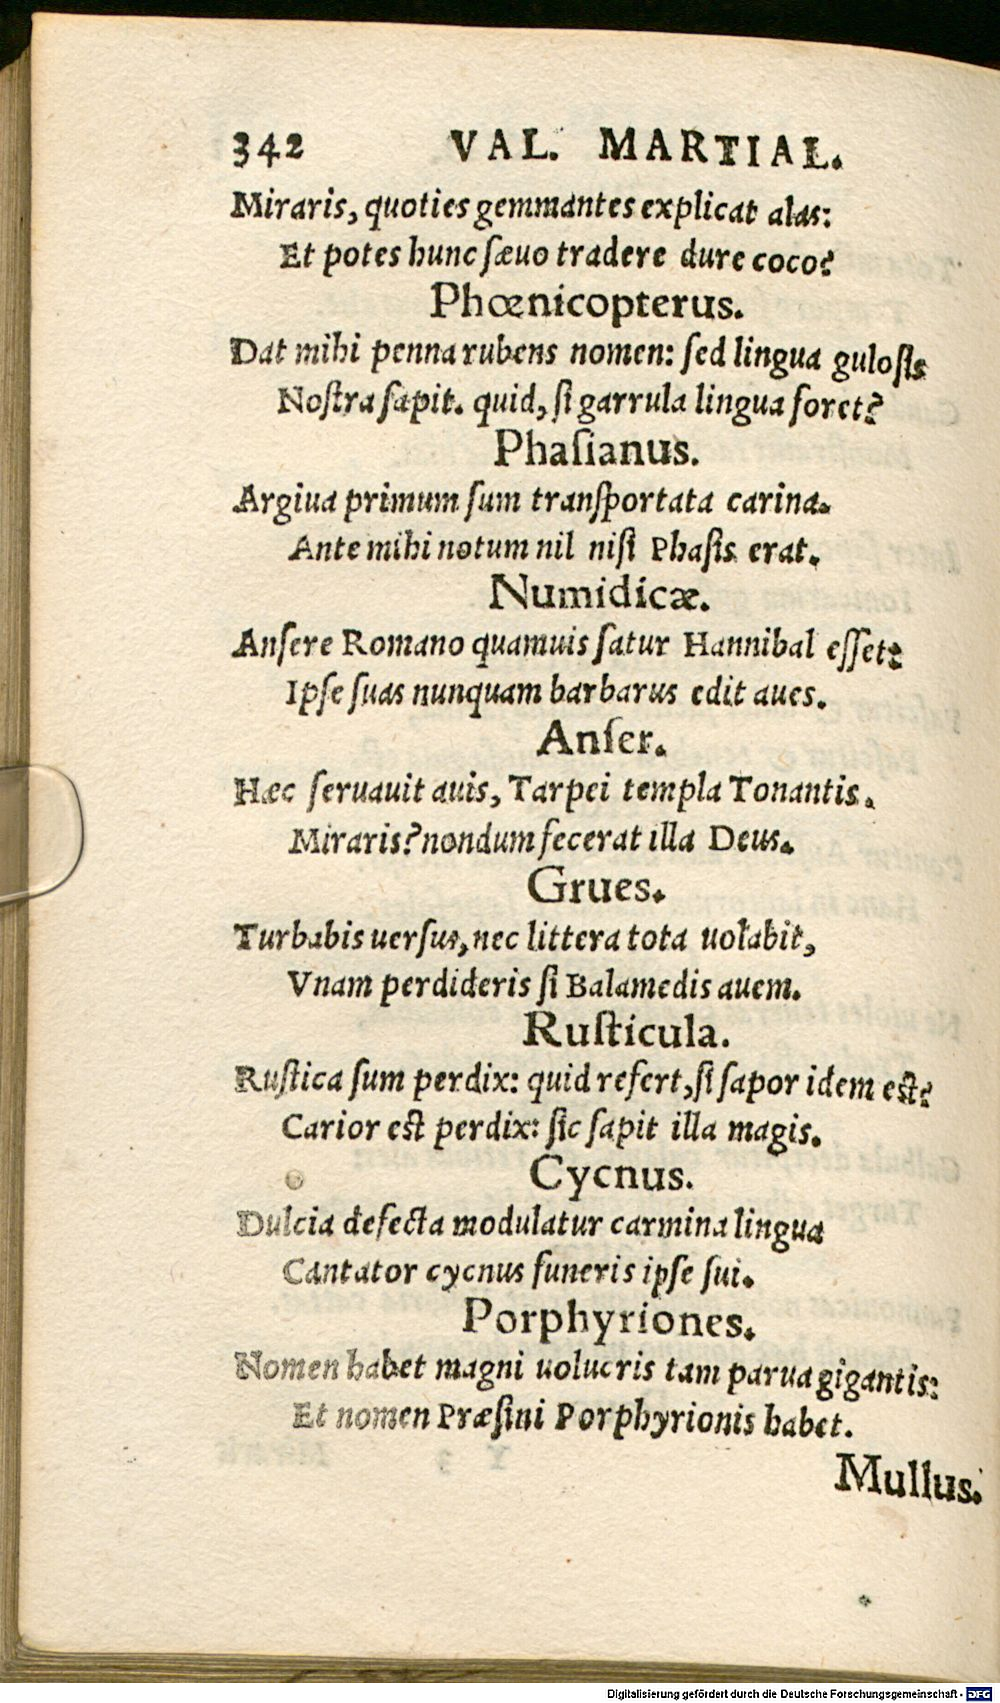 342 VAL. MARTIAL.
Miraris, quoties gemmantes explicat alas:
Et potes hunc sæuo tradere dure coco?
Phœnicopterus.
Dat mihi penna rubens nomen: sed lingua gulosis
Nostra sapit. quid, si garrula lingua foret?
Phaſianus.
Argiua primum sum tranſportata carina.
Ante mihi notum nil niſi Phaſis erat.
Numidicæ.
Anſere Romano quamuis ſatur Hannibal eſſet:
Ipſe ſuas nunquam barbarus edit aues.
Anſer.
Hæc ſeruauit auis, Tarpei templa Tonantis.
Miraris? nondum fecerat illa Deus.
Grues.
Turbabis uerſus, nec littera tota uolabit,
Vnam perdideris ſi Balamedis auem.
Ruſticula.
Ruſtica ſum perdix: quid refert, ſi ſapor idem eſt?
Carior eſt perdix: ſic ſapit illa magis.
Cycnus.
Dulcia defecta modulatur carmina lingua
Cantator cycnus funeris ipſe ſui.
Porphyriones.
Nomen habet magni uolucris tam parua gigantis:
Et nomen Præſini Porphyrionis habet.
Mullus.
Digitalisierung gefördert durch die Deutsche Forschungsgemeinschaft - DFG